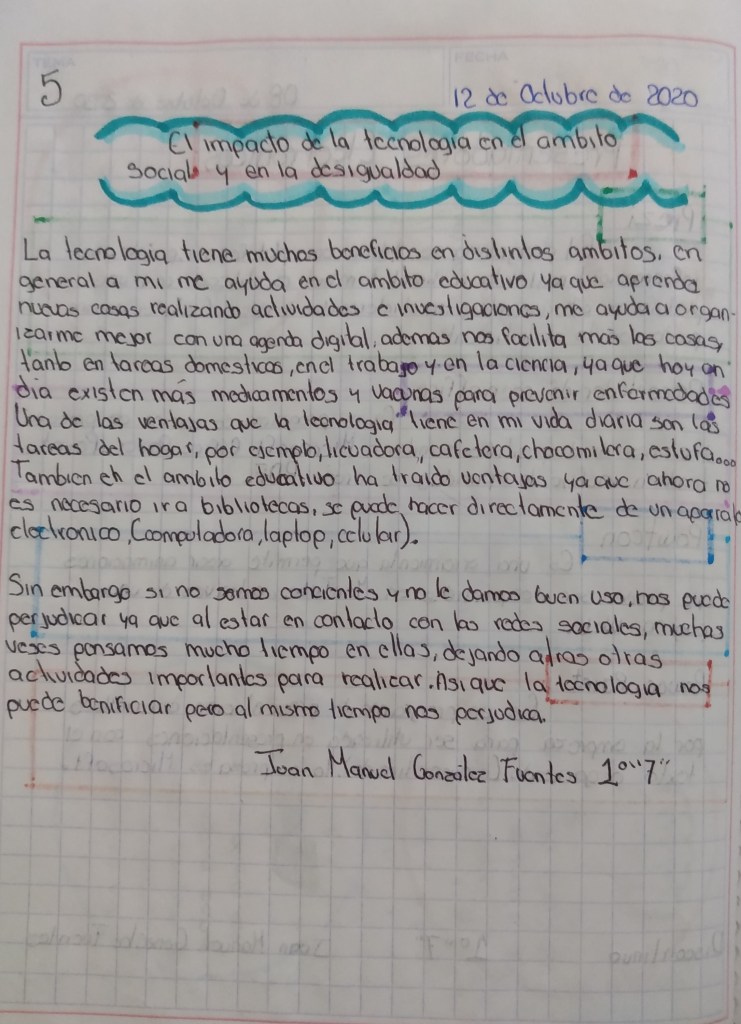 TEMA
FECHA
5
12 de Octubre de 2020
El impacto de la tecnologia en el ambito
social y en la desigualdad
La tecnologia tiene muchos beneficios en distintos ambitos, en
general a mi me ayuda en el ambito educativo ya que aprenda
nuevas cosas realizando actividades e investigaciones, me ayuda a organ-
izarme mejor con una agenda digital, ademas nos facilita más las cosas,
tanto en tareas domesticas, en el trabajo y en la ciencia, ya que hoy en
dia existen más medicamentos y vacunas para prevenir enfermedades
Una de las ventajas que la tecnologia tiene en mi vida diaria son las
tareas del hogar, por ejemplo, licuadora, cafetera, chocomilera, estufa...
Tambien en el ambito educativo ha traido ventajas ya que ahora no
es necesario ir a bibliotecas, se puede hacer directamente de un aparato
electronico, (computadora, laptop, celular).
Sin embargo si no somos concientes y no le damos buen uso, nos puede
perjudicar ya que al estar en contacto con las redes sociales, muchas
veses pensamos mucho tiempo en ellas, dejando atras otras
actividades importantes para realizar. Asi que la tecnologia nos
puede benificiar pero al mismo tiempo nos perjudica.
Juan Manuel González Fuentes 1°"7"